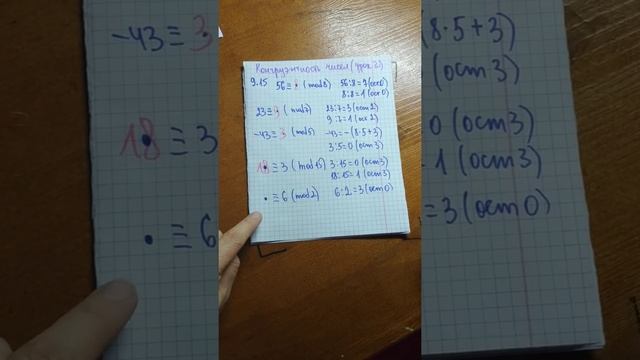 Конгруэнтность чисел (урок 2)
9.15 56 ≡ • (mod 8) 56:8=7 (ост 0)
8:8=1 (ост 0)
23 ≡ • (mod 7) 23:7=3 (ост 2)
9:7=1 (ост 2)
-43 ≡ 3 (mod 5) -43=-(8·5+3)
3:5=0 (ост 3)
18 ≡ 3 (mod 15) 3:15=0 (ост 3)
18:15=1 (ост 3)
• ≡ 6 (mod 2) 6:2=3 (ост 0)
-43 ≡ 3
18 ≡ 3
• ≡ 6
(8·5+3)
(ост 3)
0 (ост 3)
1 (ост 3)
=3 (ост 0)